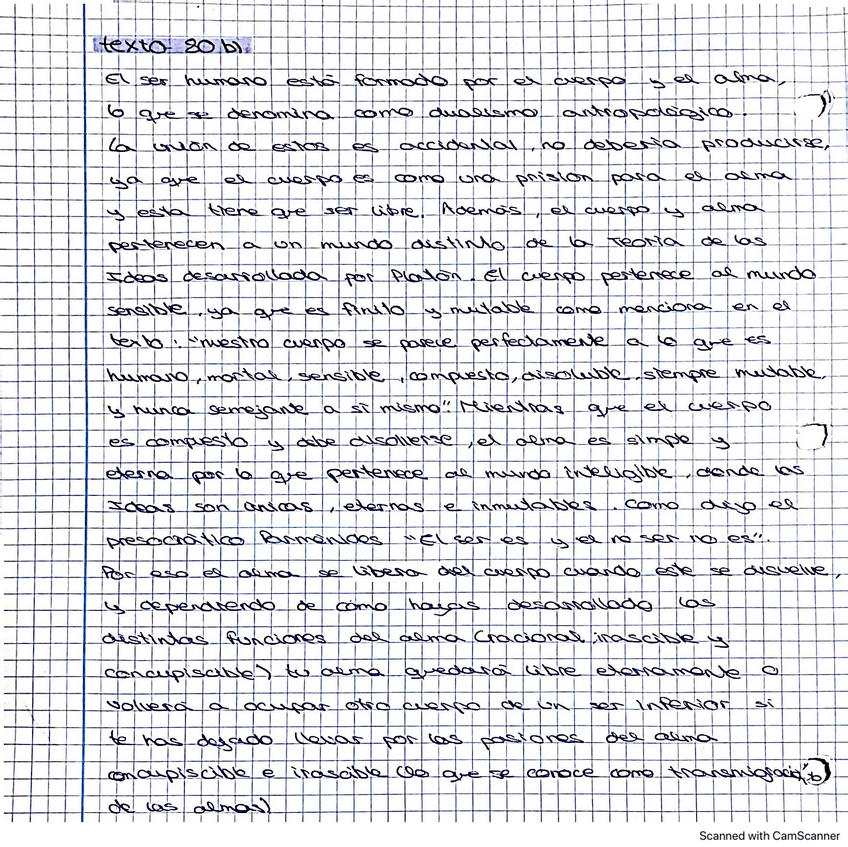 texto 80 b).
El ser humano está formado por el cuerpo y el alma,
lo que se denomina como dualismo antropológico.
La unión de estos es accidental, no debería producirse,
ya que el cuerpo es como una prisión para el alma
y esta tiene que ser libre. Además, el cuerpo y alma
pertenecen a un mundo distinto de la Teoría de las
Ideas desarrollada por Platón. El cuerpo pertenece al mundo
sensible, ya que es finito y mutable como menciona en el
texto: "nuestro cuerpo se parece perfectamente a lo que es
humano, mortal, sensible, compuesto, disoluble, siempre mutable,
y nunca semejante a sí mismo". Mientras que el cuerpo
es compuesto y debe disolverse, el alma es simple y
eterna por lo que pertenece al mundo inteligible, donde las
Ideas son únicas, eternas e inmutables. Como dijo el
presocrático Parménides "El ser es y el no ser no es".
Por eso el alma se libera del cuerpo cuando este se disuelve,
y dependiendo de cómo hayas desarrollado las
distintas funciones del alma (racional, irascible y
concupiscible) tu alma quedará libre eternamente o
volverá a ocupar otro cuerpo de un ser inferior si
te has dejado llevar por las pasiones del alma
concupiscible e irascible (lo que se conoce como
de las almas)
Scanned with CamScanner